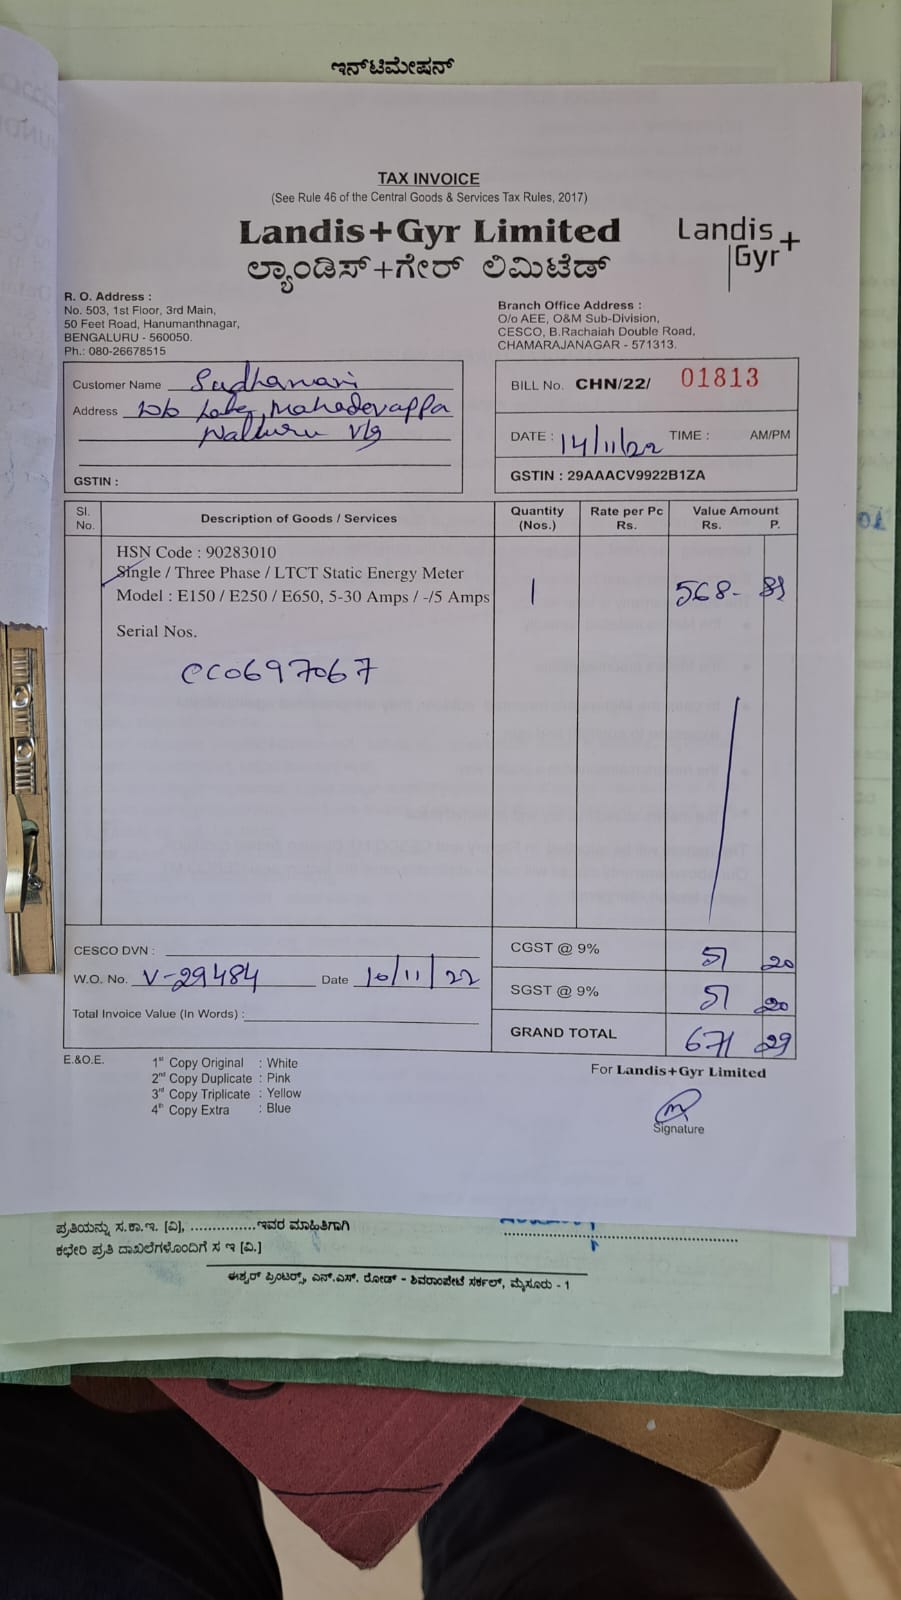 ಇನ್‌ಟಿಮೇಷನ್
TAX INVOICE
(See Rule 46 of the Central Goods & Services Tax Rules, 2017)
Landis+Gyr Limited
ಲ್ಯಾಂಡಿಸ್+ಗೇರ್ ಲಿಮಿಟೆಡ್
Landis+
Gyr
R. O. Address :
No. 503, 1st Floor, 3rd Main,
50 Feet Road, Hanumanthnagar,
BENGALURU - 560050.
Ph.: 080-26678515
Branch Office Address :
O/o AEE, O&M Sub-Division,
CESCO, B.Rachaiah Double Road,
CHAMARAJANAGAR - 571313.
Customer Name Sudhamani
Address Mahadevappa
Nalluru Vlg
GSTIN :
BILL No. CHN/22/ 01813
DATE : 14/11/22 TIME : AM/PM
GSTIN : 29AAACV9922B1ZA
Sl. No. Description of Goods / Services Quantity (Nos.) Rate per Pc Rs. Value Amount Rs. P.
HSN Code : 90283010
Single / Three Phase / LTCT Static Energy Meter
Model : E150 / E250 / E650, 5-30 Amps / -/5 Amps 1 568-89
Serial Nos.
CC0697067
CESCO DVN :
W.O. No. V-29484 Date 10/11/22
Total Invoice Value (In Words) :
CGST @ 9% 51 20
SGST @ 9% 51 20
GRAND TOTAL 671 29
E.&O.E.
1st Copy Original : White
2nd Copy Duplicate : Pink
3rd Copy Triplicate : Yellow
4th Copy Extra : Blue
For Landis+Gyr Limited
Signature
ಪ್ರತಿಯನ್ನು ಸ.ಕಾ.ಇ. [ವಿ], ..............ಇವರ ಮಾಹಿತಿಗಾಗಿ
ಕಛೇರಿ ಪ್ರತಿ ದಾಖಲೆಗಳೊಂದಿಗೆ ಸ ಇ [ವಿ.]
ಈಶ್ವರ್ ಪ್ರಿಂಟರ್ಸ್, ಎನ್.ಎಸ್. ರೋಡ್ - ಶಿವರಾಂಪೇಟೆ ಸರ್ಕಲ್, ಮೈಸೂರು - 1